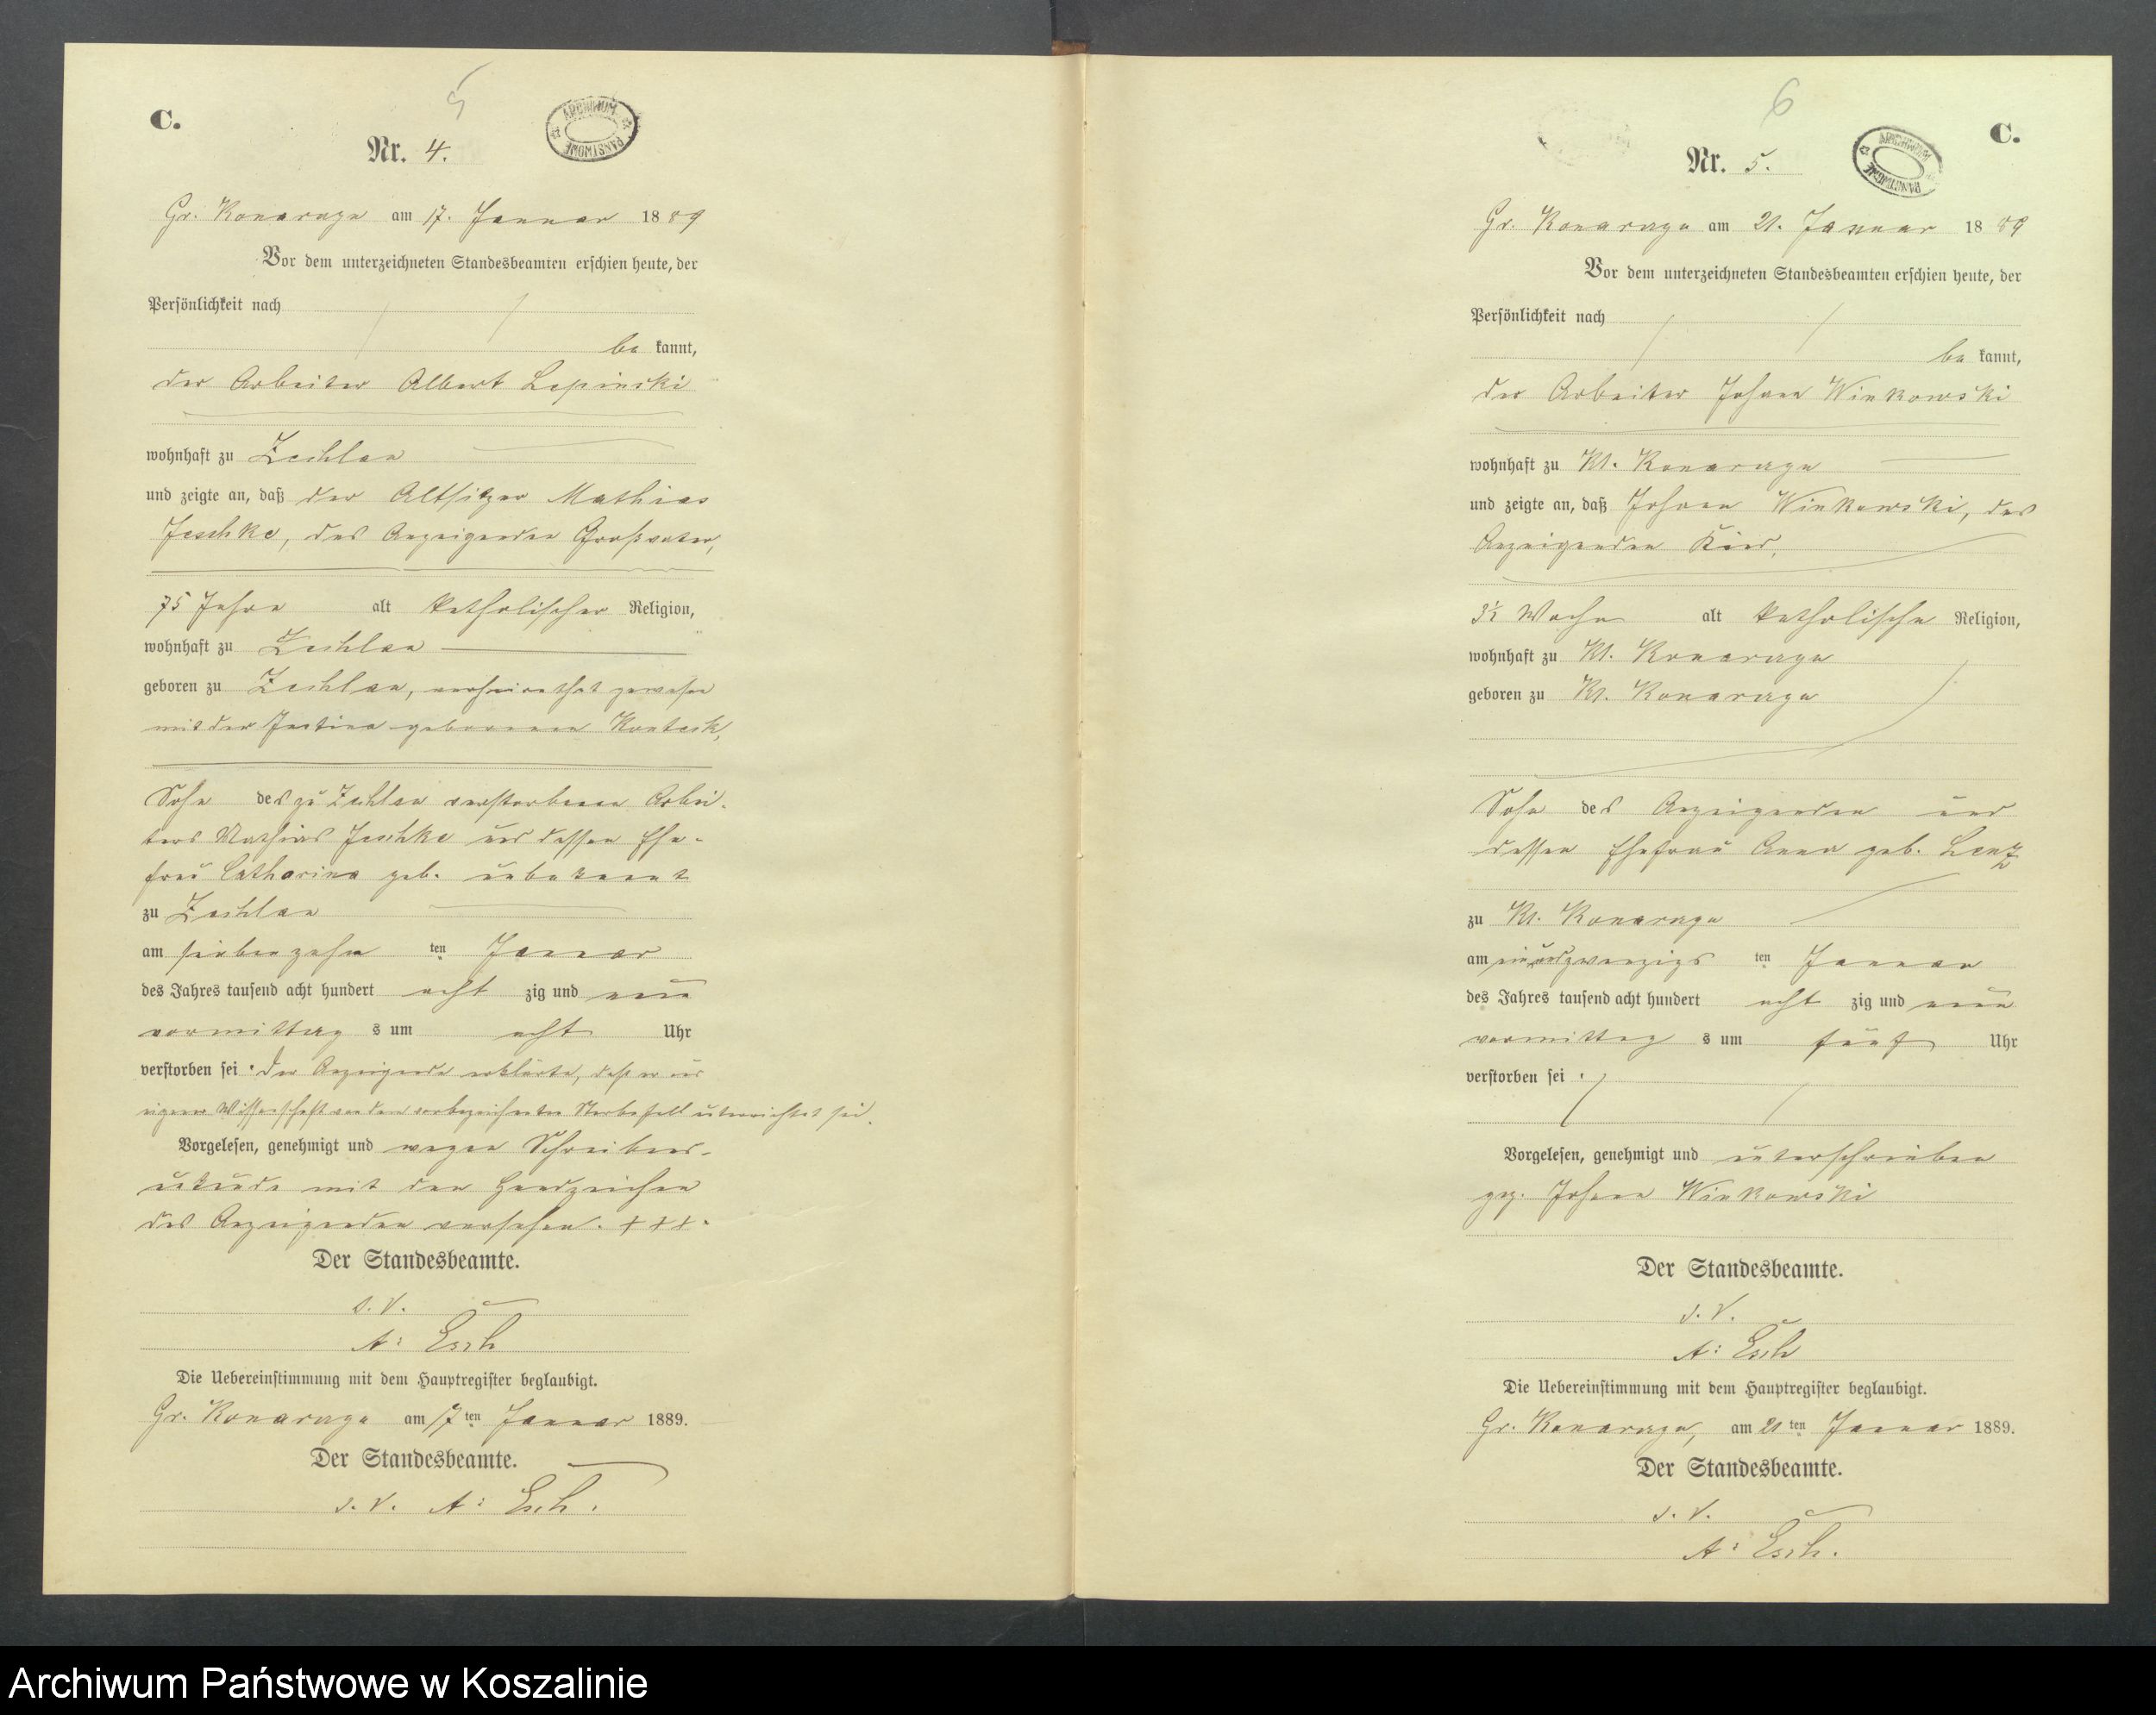 5
C.
ARCHIWUM PAŃSTWOWE
Nr. 4.
Gr. Konarczyn am 17. Januar 1889
Vor dem unterzeichneten Standesbeamten erschien heute, der
Persönlichkeit nach
be kannt,
der Arbeiter Albert Lepinski
wohnhaft zu Zechlau
und zeigte an, daß der Altsitzer Mathias
Jeschke, des Anzeigenden Großvater,
75 Jahre alt katholischer Religion,
wohnhaft zu Zechlau
geboren zu Zechlau, verheirathet gewesen
mit der Justina geborenen
Sohn des zu Zechlau verstorbenen Arbei-
ters Mathias Jeschke und dessen Ehe-
frau Catharina geb. unbekannt
zu Zechlau
am siebenzehn ten Januar
des Jahres tausend acht hundert acht zig und neun
vormittag s um acht Uhr
verstorben sei. Der Anzeigende erklärte, daß er aus
eigener Wissenschaft von dem vorbezeichneten Sterbefall unterrichtet sei.
Vorgelesen, genehmigt und wegen Schreibens-
unkunde mit den Handzeichen
des Anzeigenden versehen. +++.
Der Standesbeamte.
s. V.
A: Esch
Die Uebereinstimmung mit dem Hauptregister beglaubigt.
Gr. Konarczyn am 17ten Januar 1889.
Der Standesbeamte.
s. V. A: Esch.
6
C.
ARCHIWUM PAŃSTWOWE
Nr. 5.
Gr. Konarczyn am 21. Januar 1889
Vor dem unterzeichneten Standesbeamten erschien heute, der
Persönlichkeit nach
be kannt,
der Arbeiter Johann Winkowski
wohnhaft zu Kl. Konarczyn
und zeigte an, daß Johann Winkowski, des
Anzeigenden Kind,
3½ Woche alt katholische Religion,
wohnhaft zu Kl. Konarczyn
geboren zu Kl. Konarczyn
Sohn des Anzeigenden und
dessen Ehefrau Anna geb. Lenz
zu Kl. Konarczyn
am einundzwanzigs ten Januar
des Jahres tausend acht hundert acht zig und neun
vormittag s um fünf Uhr
verstorben sei.
Vorgelesen, genehmigt und unterschrieben
gez. Johann Winkowski
Der Standesbeamte.
s. V.
A: Esch
Die Uebereinstimmung mit dem Hauptregister beglaubigt.
Gr. Konarczyn, am 21ten Januar 1889.
Der Standesbeamte.
s. V.
A: Esch.
Archiwum Państwowe w Koszalinie